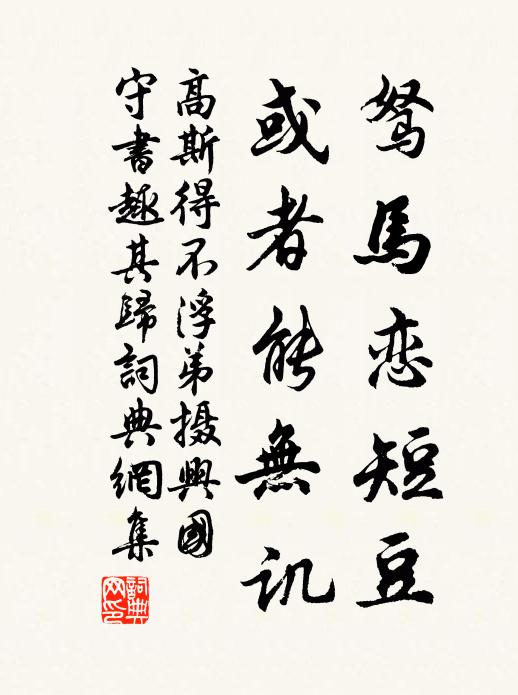 驽馬恋短豆
或者能無讥
高斯得不浮弟摄興國
守書趣其歸詞典網集
詞典网印